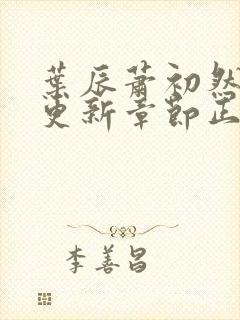 葉辰蕭初然
更新章節正
李善昌